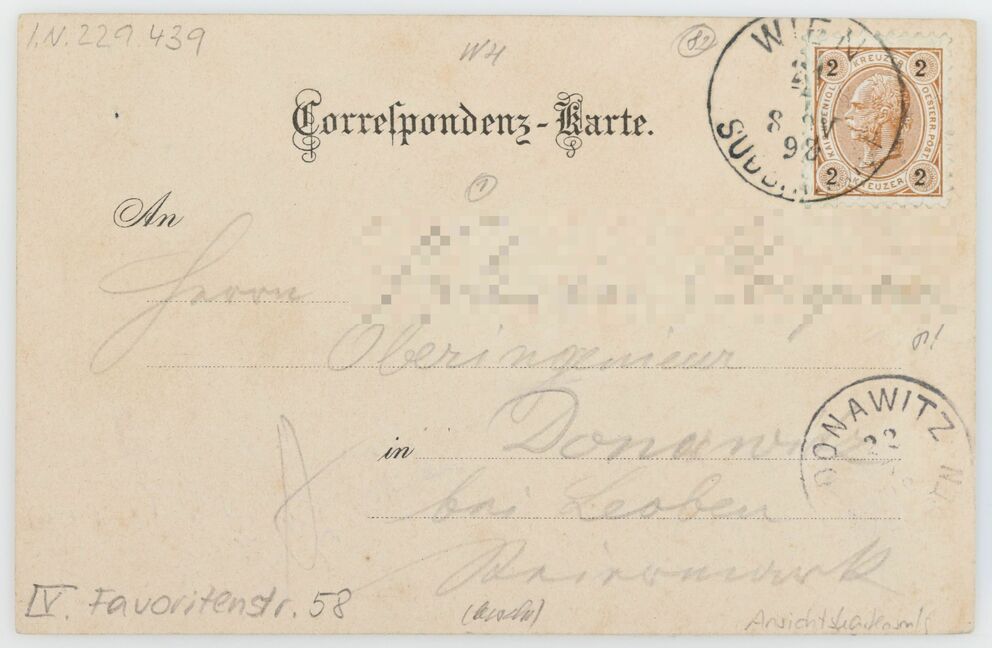 I.N. 229.439
W4
82
Correspondenz-Karte.
WIEN
8
98
SÜDBAHN
2 KREUZER 2
OESTERR. POST.
2 KREUZER 2
1
An
Herrn
Oberingenieur
in Donawitz
bei Leoben
Steiermark
DONAWITZ
22
IV. Favoritenstr. 58